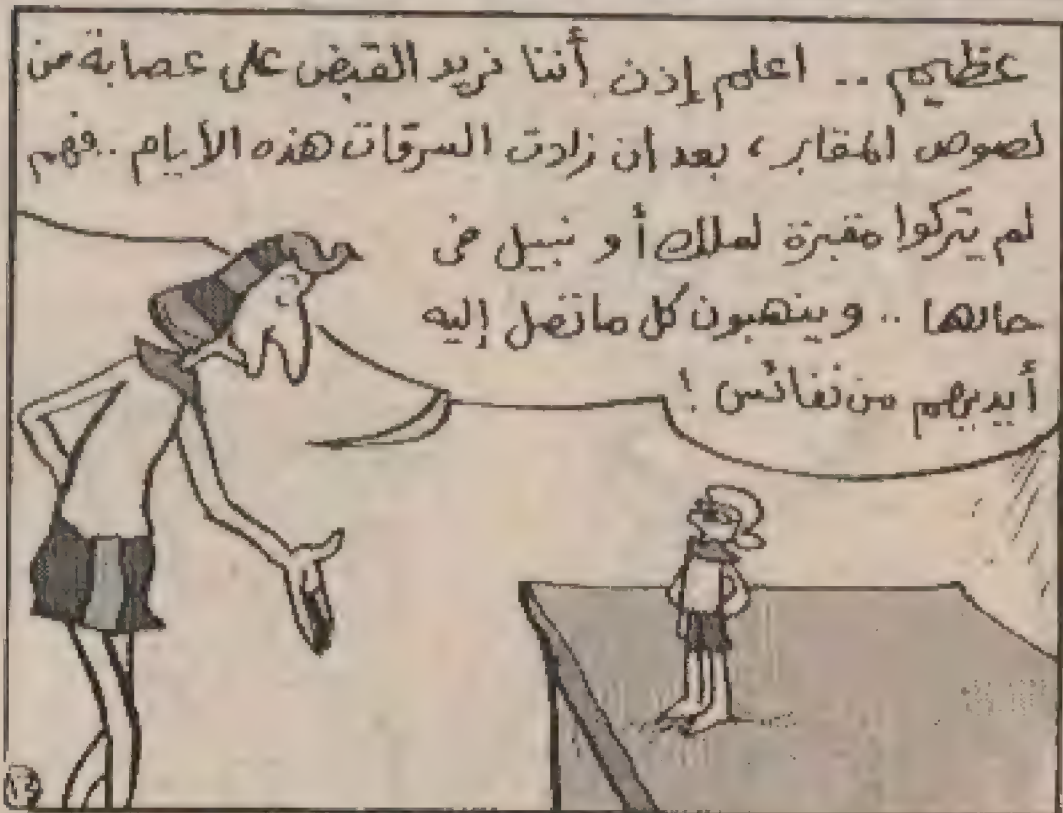 عظيم .. اعلم إذن أننا نريد القبض على عصابة من
لصوص المقابر ، بعد أن زادت السرقات هذه الأيام . فهم
لم يتركوا مقبرة لملك أو نبيل فى
حالها .. وينهبون كل ما تصل إليه
أيديهم من نفائس !